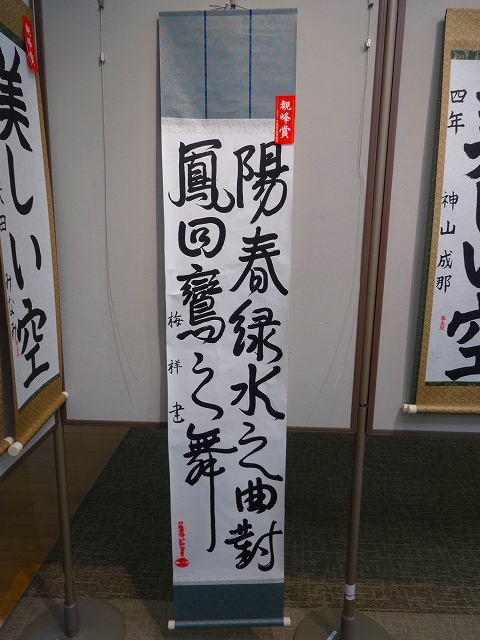 陽春緑水之曲對
鳳回鸞之舞
梅祥書
観峰賞
美しい空
みなみ
しい空
四年 神山成那